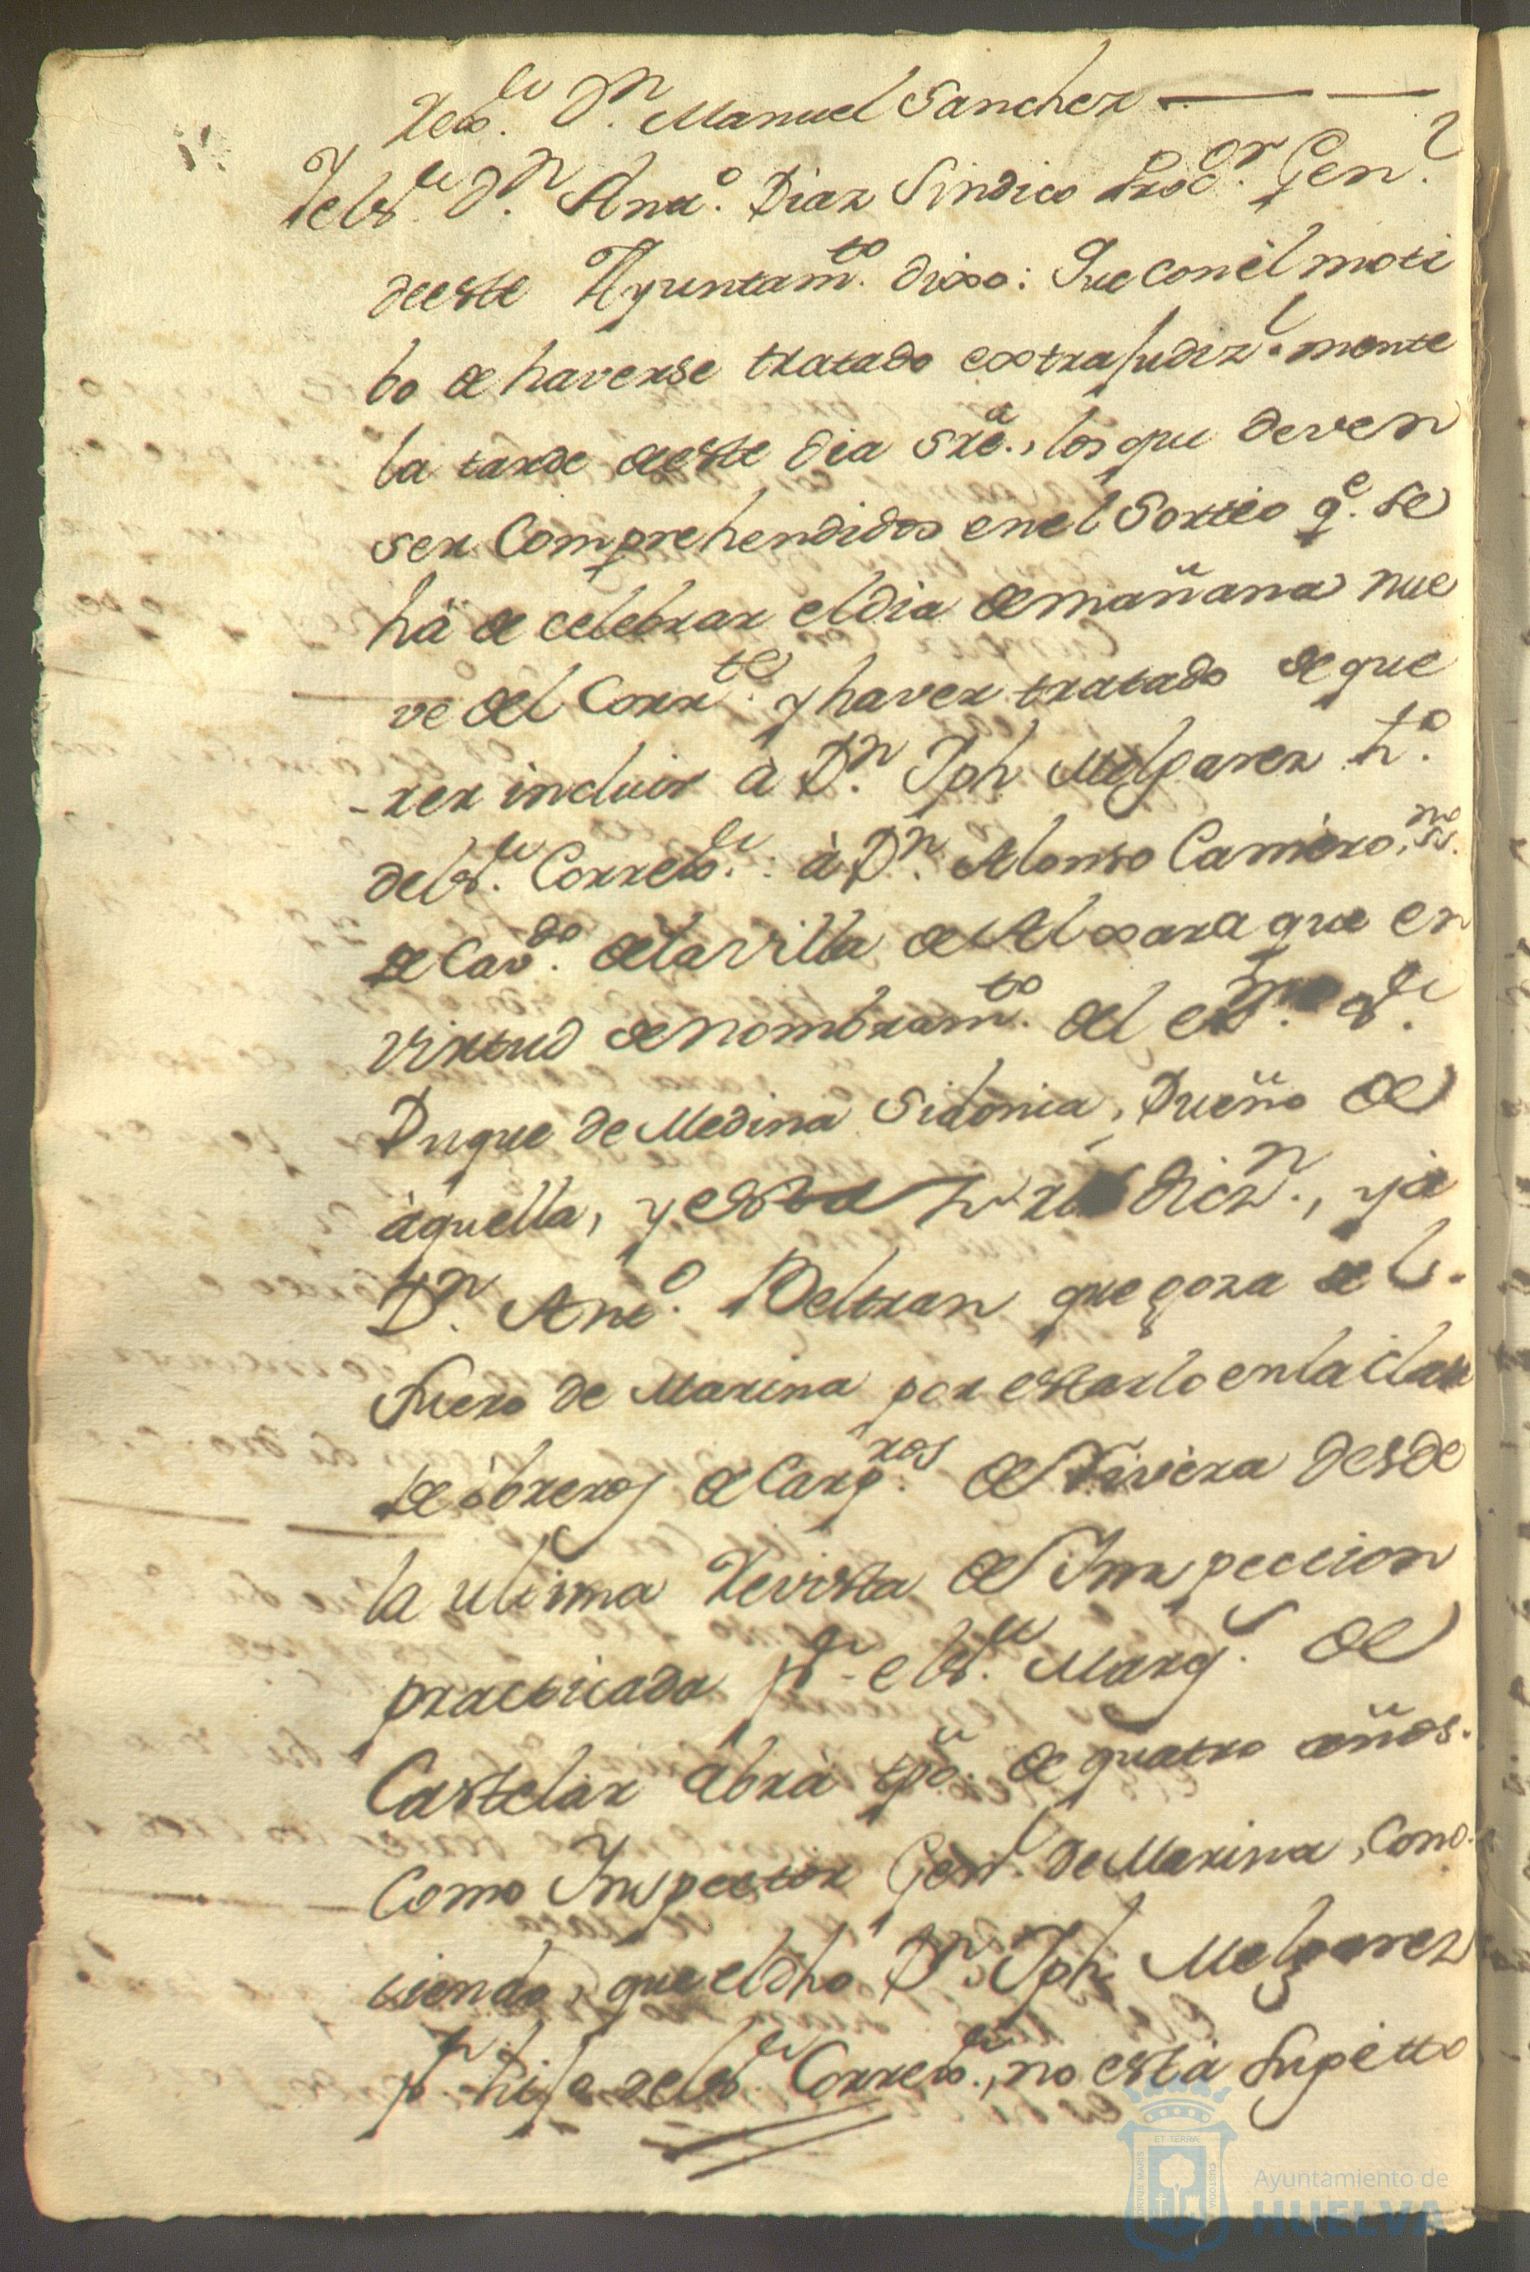 Rexor. Dn. Manuel Sanchez
Y el Sr. Dn. Anto. Diaz Sindico Procor. Genl.
de este Ayuntamto. dixo: Que con él moti
bo de haverse tratado extrajudizl.mente
la tarde de este dia sre., los que deven
ser Comprehendidos en el Sorteo qe. se
há de celebrar el dia de mañana nue
ve del Corrte. y haver tratado de que
-rer incluir à Dn. Jph Melgarez ho.
del Sr. Correxor. à Dn. Alonso Camíero, no
de Cavdo. de la Villa de Aljaraque en
virtud de nombramto. del exmo. Sr.
Duque de Medina Sidonia, Dueño de
àquella, y esta Jurisdicn., y à
Dn. Anto. Beltran que goza del
fuero de Marina por estarlo en la clase
de òbreros de Carpros. de Rivera desde
la ultima Revista de Inspeccion
practicada pr. el Sr. Marqs. de
Castelar abrá tpõ. de quatro años
Como Inspector Genl. de Marina, Cono-
ciendo, que el dho Dn. Jph Melgarez
pr. hijo del Sr. Correxor., no està sugetto
ET TERRA
PORTUS MARIS
CUSTODIA
Ayuntamiento de
HUELVA